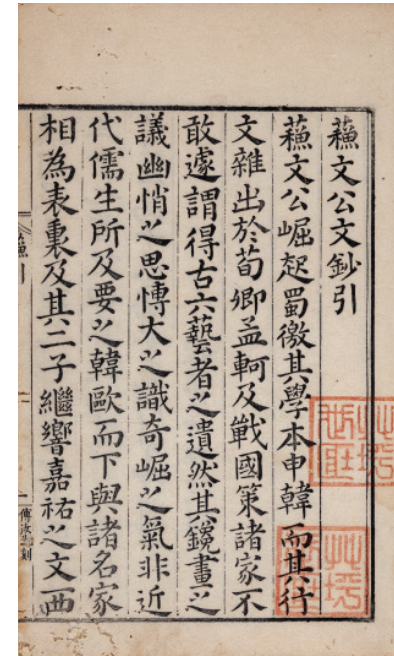 蘓文公文鈔引
蘓文公崛起蜀徼其學本申韓而其行
文雜出於荀卿孟軻及戰國策諸家不
敢遽謂得古六藝者之遺然其鏡畫之
議幽悄之思愽大之識奇崛之氣非近
代儒生所及要之韓歐而下與諸名家
相為表裏及其二子繼響嘉祐之文西
蘓引